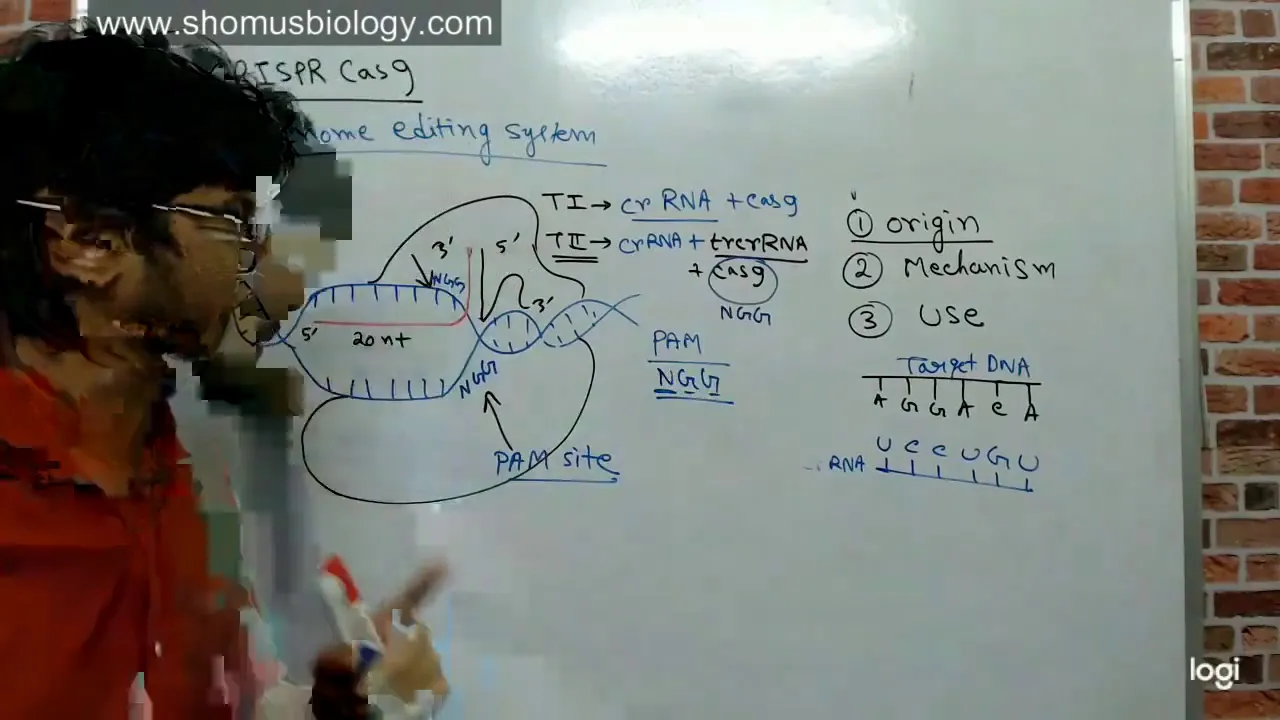 www.shomusbiology.com
RISPR Cas9
nome editing system
TI → crRNA + cas9
TII → crRNA + trcrRNA
+ cas9
NGG
① origin
② Mechanism
③ Use
3' 5'
NGG
3'
5'
20 nt
NGG
PAM
NGG
PAM site
Target DNA
A G G A C A
U C C U G U
RNA
logi